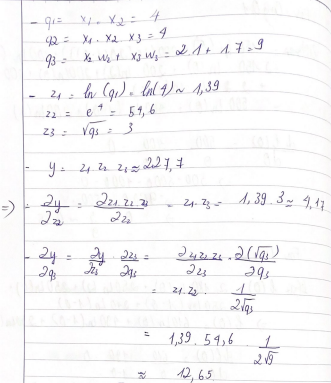 - q1 = x1 . x2 = 4
q2 = x1 . x2 x3 = 4
q3 = x2 w2 + x3 w3 = 2.1 + 1.7 = 9
- z1 = ln(q1) = ln(4) ~ 1,39
z2 = e^4 = 54,6
z3 = √q3 = 3
- y = z1 . z2 . z3 ≈ 227,7
=> - ∂y/∂z2 = ∂z1.z2.z3/∂z2 = z1.z3 = 1,39 . 3 ≈ 4,17
- ∂y/∂q3 = ∂y/∂z3 . ∂z3/∂q3 = ∂z1z2z3/∂z3 . ∂(√q3)/∂q3
= z1.z2 . 1/2√q3
= 1,39 . 54,6 . 1/2√9
≈ 12,65